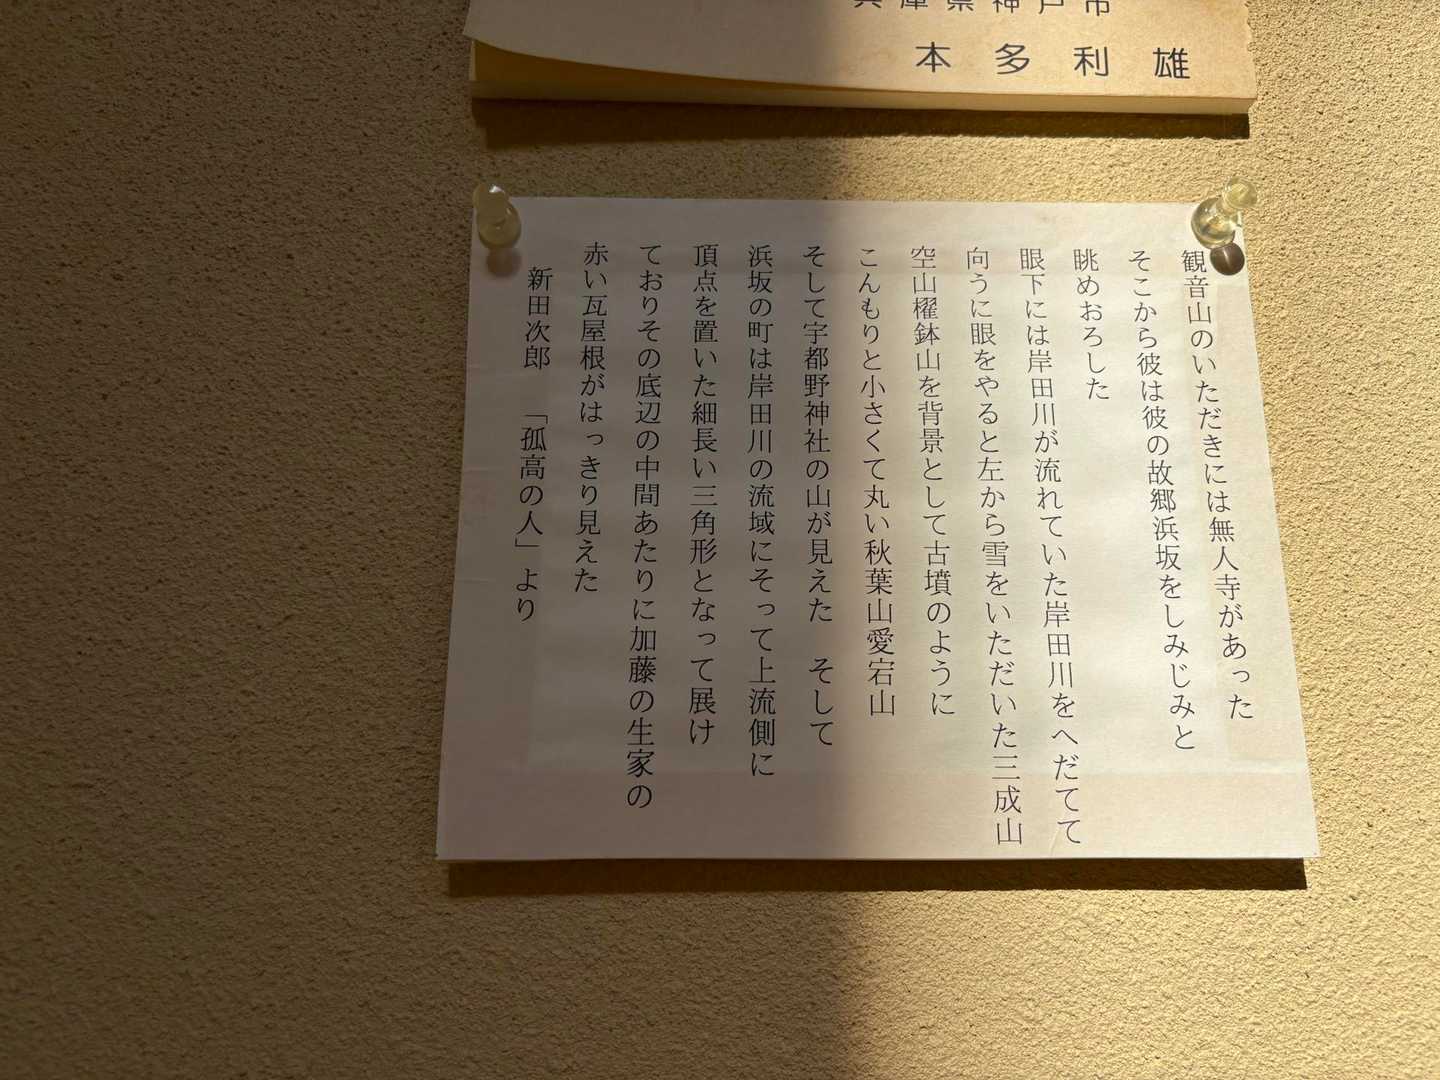 兵庫県神戸市
本多利雄
観音山のいただきには無人寺があった
そこから彼は彼の故郷浜坂をしみじみと
眺めおろした
眼下には岸田川が流れていた岸田川をへだてて
向うに眼をやると左から雪をいただいた三成山
空山櫂鉢山を背景として古墳のように
こんもりと小さくて丸い秋葉山愛宕山
そして宇都野神社の山が見えた　そして
浜坂の町は岸田川の流域にそって上流側に
頂点を置いた細長い三角形となって展け
ておりその底辺の中間あたりに加藤の生家の
赤い瓦屋根がはっきり見えた
新田次郎　「孤高の人」より